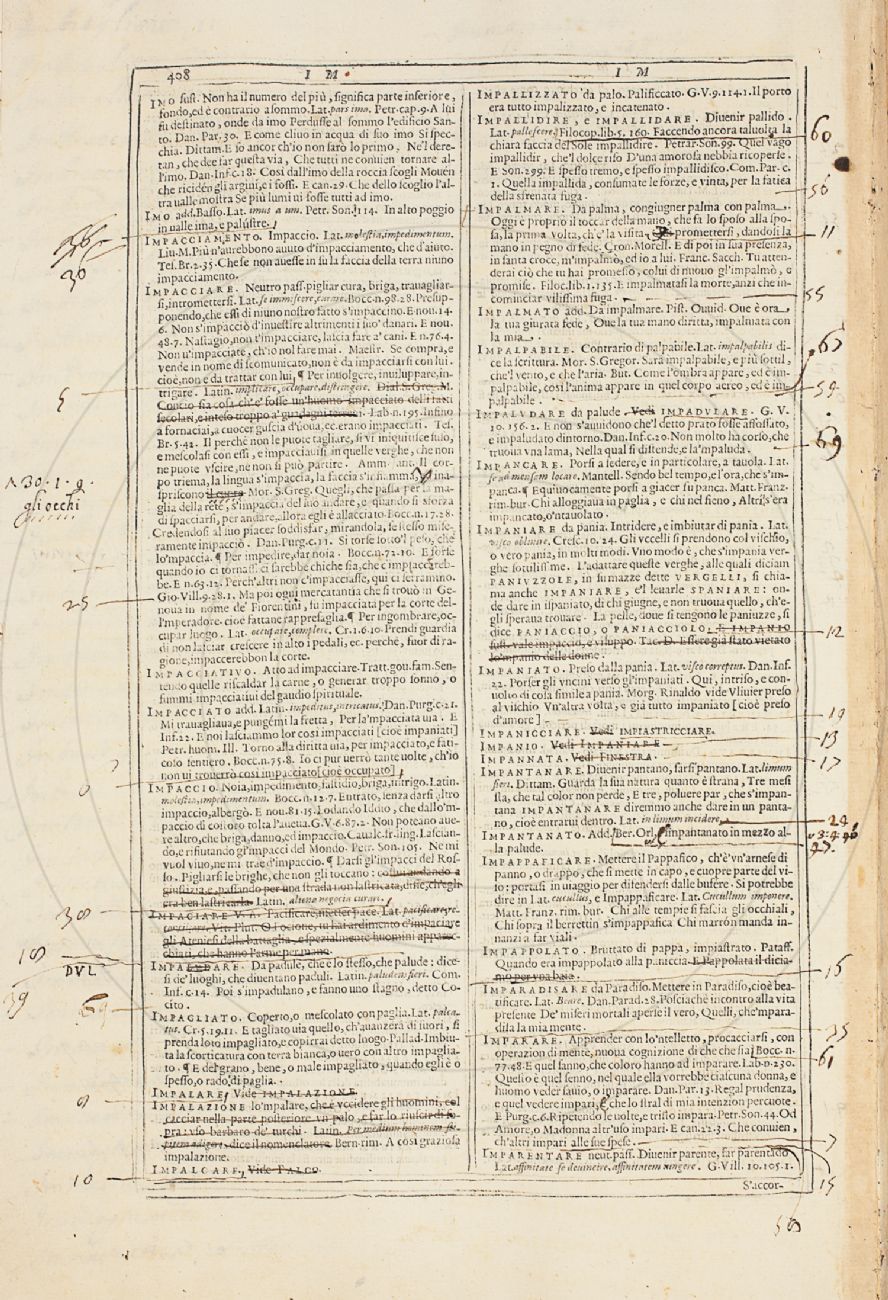 408
I M
I M
IMO sust. Non ha il numero del più, significa parte inferiore,
fondo, ed è contrario a sommo. Lat. pars imo. Petr. cap. 9. A lui
fu destinato, onde da imo Perdusse al sommo l'edificio San-
to. Dan. Par. 30. E come cliuo in acqua di suo imo Si spec-
chia. Dittam. E so ancor ch'io non sarò lo primo, Nè'l dere-
tan, che dee far questa via, Che tutti ne conuien tornare al-
l'imo. Dan. Inf. c. 18. Cosi dall'imo della roccia scogli Mouén
che ricidén gli argini, e i fossi. E can. 29. Che dello scoglio l'al-
tra ualle mostra Se più lumi ui fosse tutti ad imo.
IMO add. Basso. Lat. imus a um. Petr. Son. 114. In alto poggio
in ualle ima, e palustre.
IMPACCIAMENTO. Impaccio. Lat. molestia, impedimentum.
Liu. M. Più n'aurebbono auuto d'impacciamento, che d'aiuto.
Tes. Br. 2. 35. Che se non auesse in su la faccia della terra niuno
impacciamento.
IMPACCIARE. Neutro pass. pigliar cura, briga, trauagliar-
si, intromettersi. Lat. se immiscere, curare. Bocc. n. 98. 28. Presup-
ponendo, che essi di niuno nostro fatto s'impaccino. E nou. 14.
6. Non s'impacciò d'inuestire altrimenti i suo' danari. E nou.
48. 7. Nastagio, non t'impacciare, lascia fare a' cani. E n. 76. 4.
Non u'impacciate, ch'io nol fare mai. Maestr. Se compra, e
vende in nome di scomunicato, non è da impacciarsi con lui.
cioè, non è da trattar con lui. ¶ Per inuolgere, inuiluppare, in-
trigare. Latin. implicare, occupare, distringere. Dial. S. Greg. M.
Concio sia cosa ch'e' fosse un'huomo impacciato delli fatti
secolari, e inteso troppo a' guadagni terreni. Lab. n. 195. Infino
a fornaciai, a cuocer guscia d'uoua, ec. erano impacciati. Tes.
Br. 5. 42. Il perchè non le puote tagliare, si vi inquisisce suso,
e mescolasi con essi, e impacciauisi in quelle verghe, che non
ne puote vscire, nè non si può partire. Amm. ant. Il cor-
po triema, la lingua s'impaccia, la faccia s'infiamma, ina-
spriscono Mor. S. Greg. Quegli, che passa per la ma-
glia della rete, s'impaccia del suo andare, e quando si sforza
di spacciarsi, per andare, allora egli è allacciato. Bocc. n. 17. 28.
Credendosi al suo piacer soddisfar, mirandola, se stesso mise-
ramente inpacciò. Dan. Purg. c. 11. Si torse sotto'l peso, che
lo'mpaccia. ¶ Per impedire, dar noia. Bocc. n. 72. 10. E forse
quando io ci tornassi ci sarebbe chiche sia, che c'impaccereb-
be. E n. 63. 12. Perch'altri non c'impacciasse, qui ci serrammo.
Gio. Vill. 9. 28. 1. Ma poi ogni mercatantia che si trouò in Ge-
noua in nome de' Fiorentini, fu impacciata per la corte del-
l'imperadore. cioè fattane rappresaglia. ¶ Per ingombrare, oc-
cupar luogo. Lat. occupare, complere. Cr. 1. 6. 10. Prendi guardia
di non lasciar crescere in alto i pedali, ec. perché, fuor di ra-
gione, impaccerebbon la corte.
IMPACCIATIVO. Atto ad impacciare. Tratt. gou. fam. Sen-
tendo quelle riscaldar la carne, o generar troppo sonno, o
summi impacciatiui del gaudio spirituale.
IMPACCIATO add. Latin. impeditus, intricatus. Dan. Purg. c. 21.
Mi trauagliaua, e pungémi la fretta, Per la'mpacciata uia. E
Inf. 22. E noi lasciammo lor così impacciati [cioè impaniati]
Petr. huom. Ill. Torno alla diritta uia, per impacciato, e fati-
coso sentiero. Bocc. n. 75. 8. Io ci pur uerrò tante uolte, ch'io
non ui trouerrò così impacciato [cioè occupato]
IMPACCIO. Noia, impedimento, fastidio, briga, intrigo. Latin.
molestia, impedimentum. Bocc. n. 12. 7. Entrato, senza darsi altro
impaccio, albergò. E nou. 81. 15. Lodando Iddio, che dallo'm-
paccio di costoro tolta l'aueua. G. V. 6. 87. 2. Non poteano aue-
re altro, che briga, danno, ed impaccio. Caualc. fr. ling. Lascian-
do, e rifiutando gl'impacci del Mondo. Petr. Son. 105. Ne mi
vuol viuo, ne mi trae d'impaccio. ¶ Darsi gl'impacci del Ros-
so. Pigliarsi le brighe, che non gli toccano: costui andando a
giustizia, e passando per una strada non lastricata, disse, ch'egli
era ben lastricarla. Latin. aliena negocia curari.
IMPACIARE V. A. Pacificare, metter pace. Lat. pacificare, re-
conciliare. Vit. Plut. O Focione, tu hai ardimento d'impaciare
gli Ateniesi della battaglia, e spezialmente huomini apparec-
chiati, che hanno l'arme per mano.
DVL
IMPADVLARE. Da padule, che è lo stesso, che palude: dice-
si de' luoghi, che diuentano paduli. Latin. paludem fieri. Com.
Inf. c. 14. Poi s'impadulano, e fanno uno stagno, detto Co-
cito.
IMPAGLIATO. Coperto, o mescolato con paglia. Lat. palea-
tus. Cr. 5. 19. 11. E tagliato uia quello, ch'auanzerà di fuori, si
prenda loto impagliato, e copirrai detto luogo. Pallad. Imbiu-
ta la scorticatura con terra bianca, o uero con altro impaglia-
to. ¶ E del grano, bene, o male impagliato, quando egli è o
spesso, o rado, di paglia.
IMPALARE. Vide IMPALAZIONE.
IMPALAZIONE lo'mpalare, che è vccidere gli huomini, col
cacciar nella parte posteriore vn palo, e far lo riuscir di so-
pra: vso barbaro de' turchi. Latin. Per medium hominem sti-
pitem adigere, dice il nomenclatore. Bern. rim. A così graziosa
impalazione.
IMPALCARE. Vide PALCO.
IMPALLIZZATO da palo. Palificcato. G. V. 9. 114. 1. Il porto
era tutto impalizzato, e incatenato.
IMPALLIDIRE, e IMPALLIDARE. Diuenir pallido.
Lat. pallescere. Filocop. lib. 5. 160. Faccendo ancora taluolta la
chiara faccia del Sole impallidire. Petrar. Son. 99. Quel vago
impallidir, che'l dolce riso D'una amorosa nebbia ricoperse.
E Son. 299. E spesso tremo, e spesso impallidisco. Com. Par. c.
1. Quella impallida, consumate le forze, e vinta, per la fatica
della sfrenata fuga.
IMPALMARE. Da palma, congiugner palma con palma.
Oggi è proprio il toccar della mano, che fa lo sposo alla spo-
sa, la prima volta, che'la visita prometersi, dandosi la
mano in pegno di fede. Cron. Morell. E di poi in sua presenza,
in santa croce, m'impalmò, ed io a lui. Franc. Sacch. Tu atten-
derai ciò che tu hai promesso, colui di nuouo gl'impalmò, e
promise. Filoc. lib. 1. 135. E impalmatasi la morte, anzi che in-
cominciar vilissima fuga.
IMPALMATO add. Da impalmare. Pist. Ouuid. Oue è ora
la tua giurata fede, Oue la tua mano diritta, impalmata con
la mia.
IMPALPABILE. Contrario di palpabile. Lat. impalpabilis di-
ce la scrittura. Mor. S. Gregor. Sarà impalpabile, e più sottil,
che'l vento, e che l'aria. But. Come l'ombra appare, ed è im-
palpabile, così l'anima appare in quel corpo aereo, ed è im-
palpabile.
IMPALVDARE da palude. Vedi IMPADVLARE. G. V.
10. 156. 2. E non s'auuidono che'l detto prato fosse affossato,
e impaludato dintorno. Dan. Inf. c. 20. Non molto ha corso, che
truoua vna lama, Nella qual si distende, e la'mpaluda.
IMPANCARE. Porsi a sedere, e in particolare, a tauola. Lat.
se ad mensem locare. Mantell. Sendo bel tempo, e l'ora, che s'im-
panca. ¶ Equiuocamente porsi a giacer su panca. Matt. Franz.
rim. bur. Chi alloggiaua in paglia, e chi nel fieno, Altri s'era
impancato, o'ntauolato.
IMPANIARE da pania. Intridere, e imbiutar di pania. Lat.
visco oblinire. Cresc. 10. 24. Gli vccelli si prendono col vischio,
o vero pania, in molti modi. Vno modo è, che s'impania ver-
ghe sottilissime. L'adattare queste verghe, alle quali diciam
PANIVZZOLE, in sumazze dette VERGELLI, si chia-
ma anche IMPANIARE, e'l leuarle SPANIARE: on-
de dare in ispaniato, di chi giugne, e non truoua quello, ch'e-
gli speraua trouare. La pelle, doue si tengono le paniuzze, si
dice PANIACCIO, O PANIACCIOLO. E IMPANIO
sust. vale impaccio, e viluppo. Tac. D. Essere già stato vietato
lo'mpanio delle donne.
IMPANIATO. Preso dalla pania. Lat. visco correptus. Dan. Inf.
22. Porser gli vncini verso gl'impaniati. Qui, intriso, e con-
uolto di cosa simile a pania. Morg. Rinaldo vide Vliuier preso
al vischio Vn'altra volta, e già tutto impaniato [cioè preso
d'amore]
IMPANICCIARE. Vedi IMPIASTRICCIARE.
IMPANIO. Vedi IMPANIARE.
IMPANNATA. Vedi FINESTRA.
IMPANTANARE. Diuenir pantano, farsi pantano. Lat. limum
fieri. Dittam. Guarda la sua natura quanto è strana, Tre mesi
sta, che tal color non perde, E tre, poluere par, che s'impan-
tana IMPANTANARE diremmo anche dare in un panta-
no, cioè entrarui dentro. Lat. in limum incidere.
IMPANTANATO. Add. Ber. Orl. impantanato in mezzo al-
la palude.
IMPAPPAFICARE. Mettere il Pappafico, ch'è'vn'arnese di
panno, o drappo, che si mette in capo, e cuopre parte del vi-
so: portasi in uiaggio per difendersi dalle bufere. Si potrebbe
dire in Lat. cucullus, e Impappaficare. Lat. Cucullum imponere.
Matt. Franz. rim. bur. Chi alle tempie si fascia gli occhiali,
Chi sopra il berrettin s'impappafica Chi marron manda in-
nanzi a far viali.
IMPAPPOLATO. Bruttato di pappa, impiastrato. Pataff.
Quando era impappolato alla paniccia. E Pappolata il dicia-
mo per vna baia.
IMPARADISARE da Paradiso. Mettere in Paradiso, cioè bea-
tificare. Lat. Beare. Dan. Parad. 28. Posciachè incontro alla vita
presente De' miseri mortali aperse il vero, Quelli, che'mpara-
disa la mia mente.
IMPARARE. Apprender con lo'ntelletto, procacciarsi, con
operazion di mente, nuoua cognizione di che che sia. Bocc. n.
77. 48. E quel sanno, che coloro hanno ad imparare. Lab. n. 230.
Questo è quel senno, nel quale ella vorrebbe ciascuna donna, e
huomo veder sauio, o imparare. Dan. Par. 13. Regal prudenza,
e quel vedere impari, che lo stral di mia intenzion percuote.
E Purg. c. 6. Ripetendo le uolte, e tristo impara. Petr. Son. 44. Od
Amore, o Madonna altr'uso impari. E can. 22. 3. Che conuien,
ch'altri impari alle sue spese.
IMPARENTARE neut. pass. Diuenir parente, far parentado.
Lat. affinitate se deuincire, affinitatem iungere. G. Vill. 10. 105. 1.
S'accor-
30
5
30. 1. 9.
gli occhi
25
30
39
9
10
60
56
11
55
67
59
69
12
19
13
17
24
15
35
61
7
15